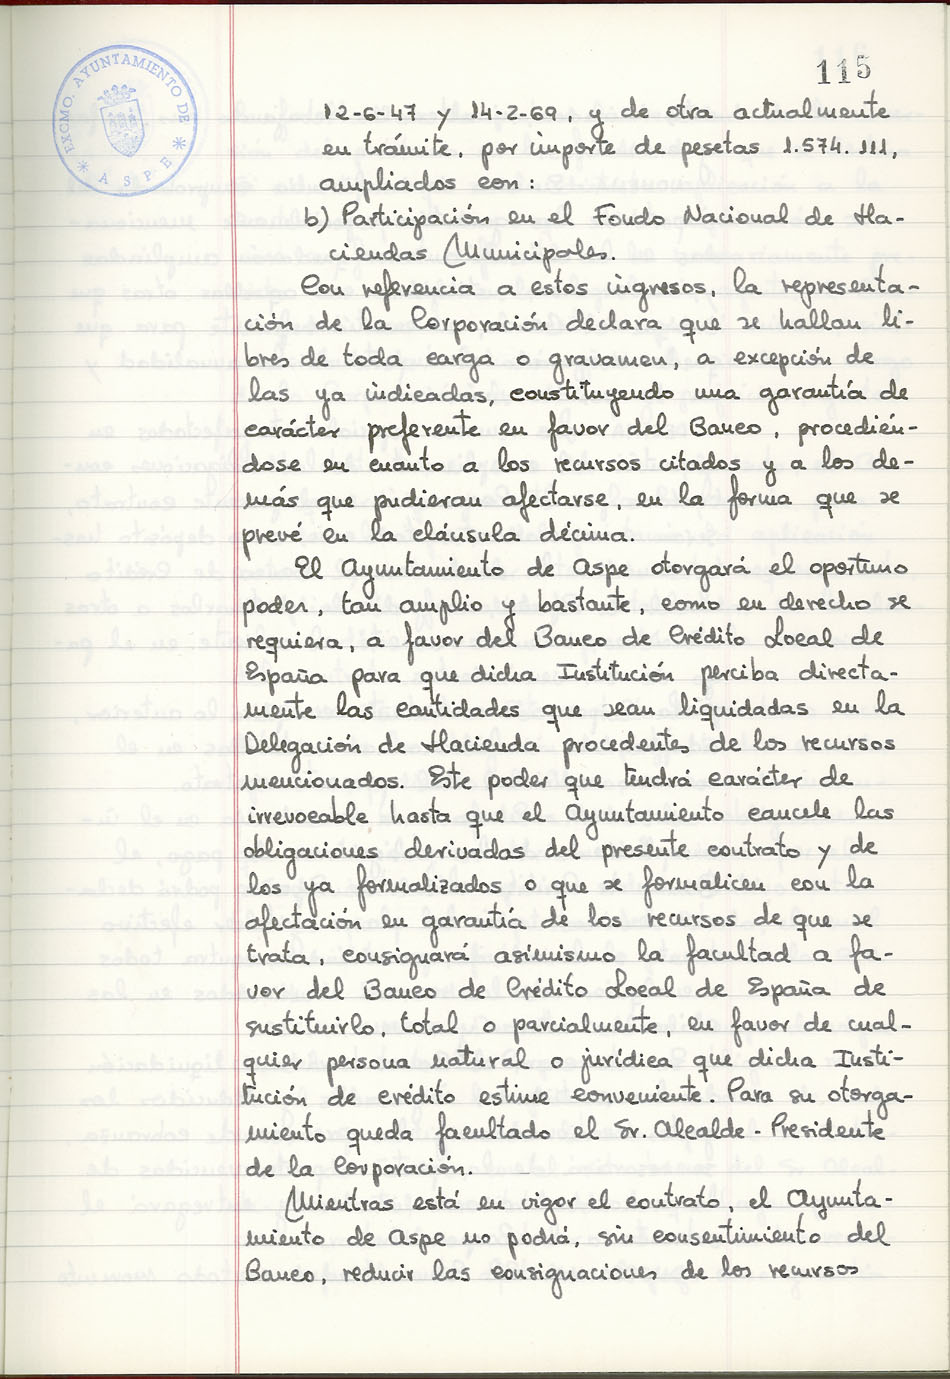 EXCMO. AYUNTAMIENTO DE
* ASPE *
115
12-6-47 y 14-2-69, y de otra actualmente
en trámite, por importe de pesetas 1.574.111,
ampliados con:
b) Participación en el Fondo Nacional de Ha-
ciendas Municipales.
Con referencia a estos ingresos, la representa-
ción de la Corporación declara que se hallan li-
bres de toda carga o gravamen, a excepción de
las ya indicadas, constituyendo una garantía de
carácter preferente en favor del Banco, procedién-
dose en cuanto a los recursos citados y a los de-
más que pudieran afectarse, en la forma que se
prevé en la cláusula décima.
El Ayuntamiento de Aspe otorgará el oportuno
poder, tan amplio y bastante, como en derecho se
requiera, a favor del Banco de Crédito Local de
España para que dicha Institución perciba directa-
mente las cantidades que sean liquidadas en la
Delegación de Hacienda procedentes de los recursos
mencionados. Este poder que tendrá carácter de
irrevocable hasta que el Ayuntamiento cancele las
obligaciones derivadas del presente contrato y de
los ya formalizados o que se formalicen con la
afectación en garantía de los recursos de que se
trata, consignará asimismo la facultad a fa-
vor del Banco de Crédito Local de España de
sustituirlo, total o parcialmente, en favor de cual-
quier persona natural o jurídica que dicha Insti-
tución de crédito estime conveniente. Para su otorga-
miento queda facultado el Sr. Alcalde-Presidente
de la Corporación.
Mientras está en vigor el contrato, el Ayunta-
miento de Aspe no podrá, sin consentimiento del
Banco, reducir las consignaciones de los recursos